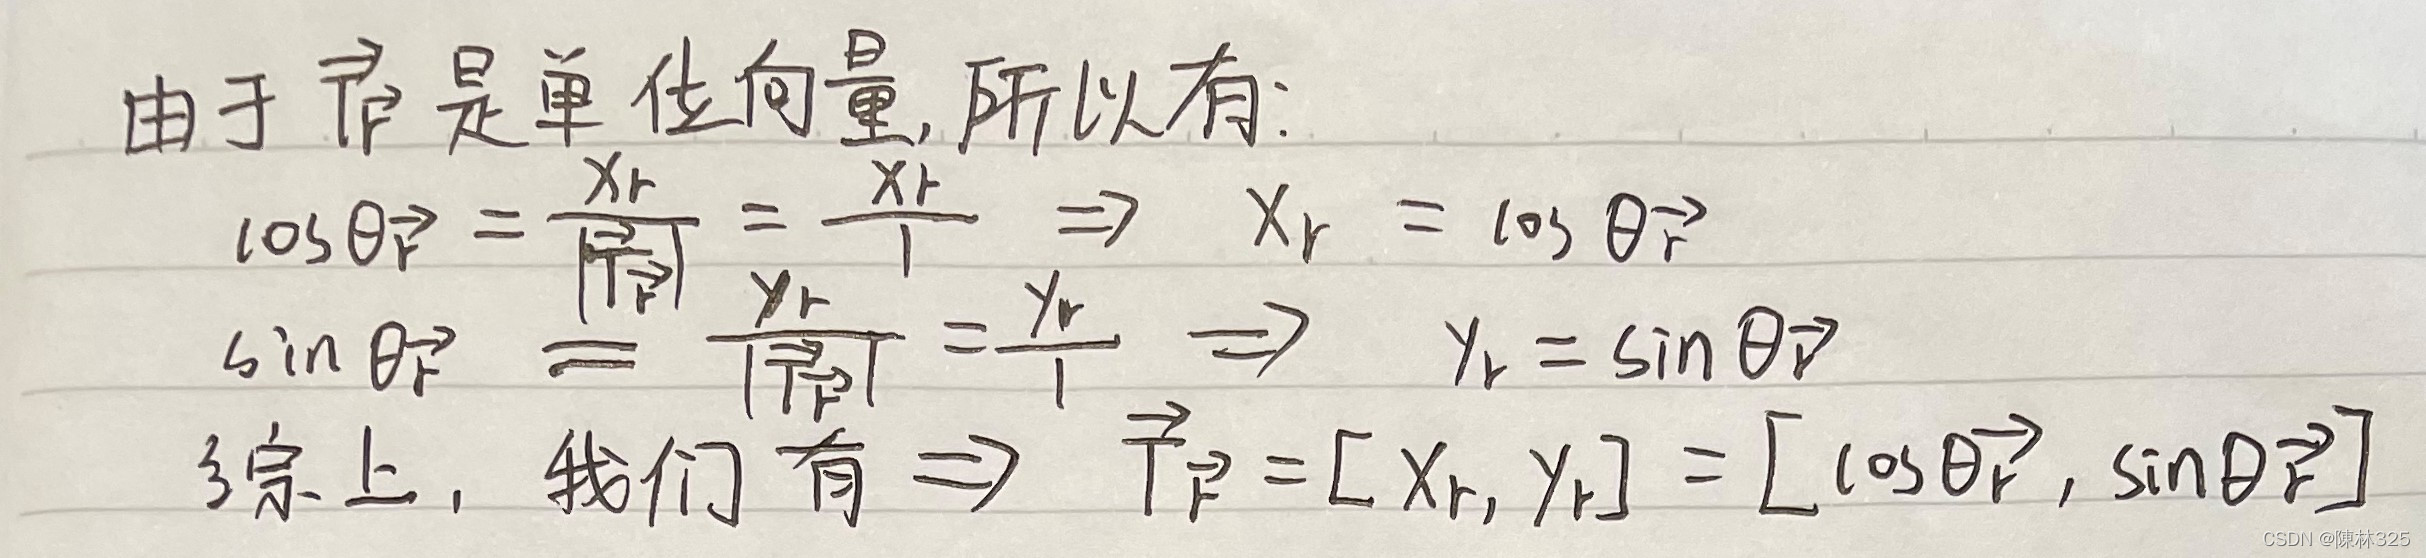 由于 $\vec{T}_{\vec{r}}$ 是单位向量,所以有:
$\cos\theta_{\vec{r}} = \frac{x_r}{|\vec{T}_{\vec{r}}|} = \frac{x_r}{1} \Rightarrow x_r = \cos\theta_{\vec{r}}$
$\sin\theta_{\vec{r}} = \frac{y_r}{|\vec{T}_{\vec{r}}|} = \frac{y_r}{1} \Rightarrow y_r = \sin\theta_{\vec{r}}$
综上,我们有 $\Rightarrow \vec{T}_{\vec{r}} = [x_r, y_r] = [\cos\theta_{\vec{r}}, \sin\theta_{\vec{r}}]$
CSDN @陳林325